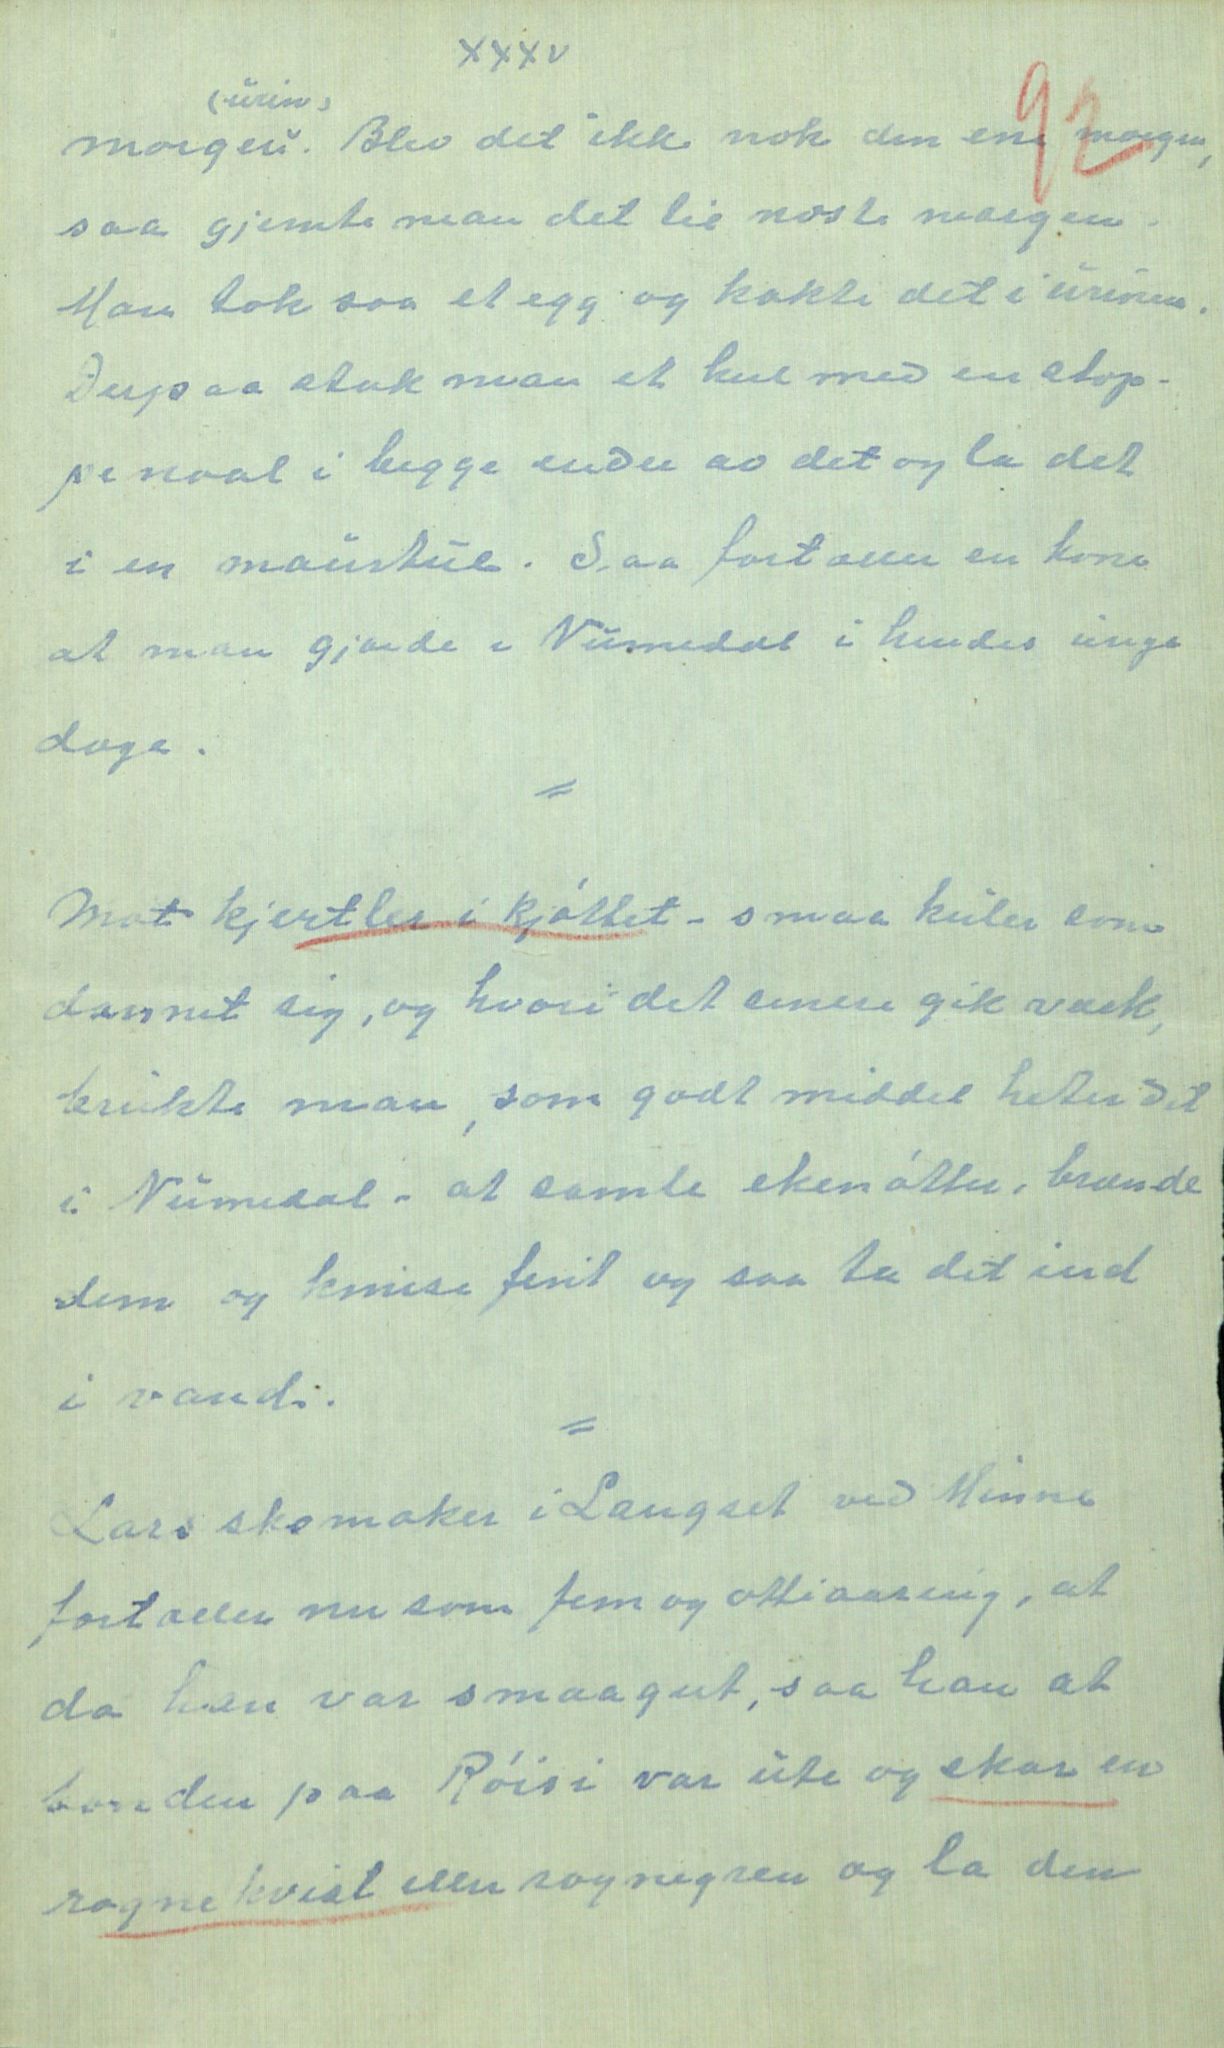 XXXV
92
(urin)
morgen. Blev det ikke nok den ene morgen,
saa gjemte man det til næste morgen.
Man tok saa et egg og kokte det i urinen.
Derpaa stak man et hul med en stop-
penaal i begge ender av det og la det
i en maurtue. Saa fortæller en kone
at man gjorde i Numedal i hendes unge
dage.
=
Mot kjertler i kjøttet - smaa kuler som
dannet sig, og hvori det senere gik væsk,
brukte man, som godt middel heter det
i Numedal - at samle ekenøtter, brænde
dem og knuse fint og saa ta det ind
i vand.
=
Lars skomaker i Langset ved Minne
fortæller nu som fem og ottiaaring, at
da han var smaagut, saa han at
bonden paa Røisi var ute og skar en
rognekvist eller rognegren og la den